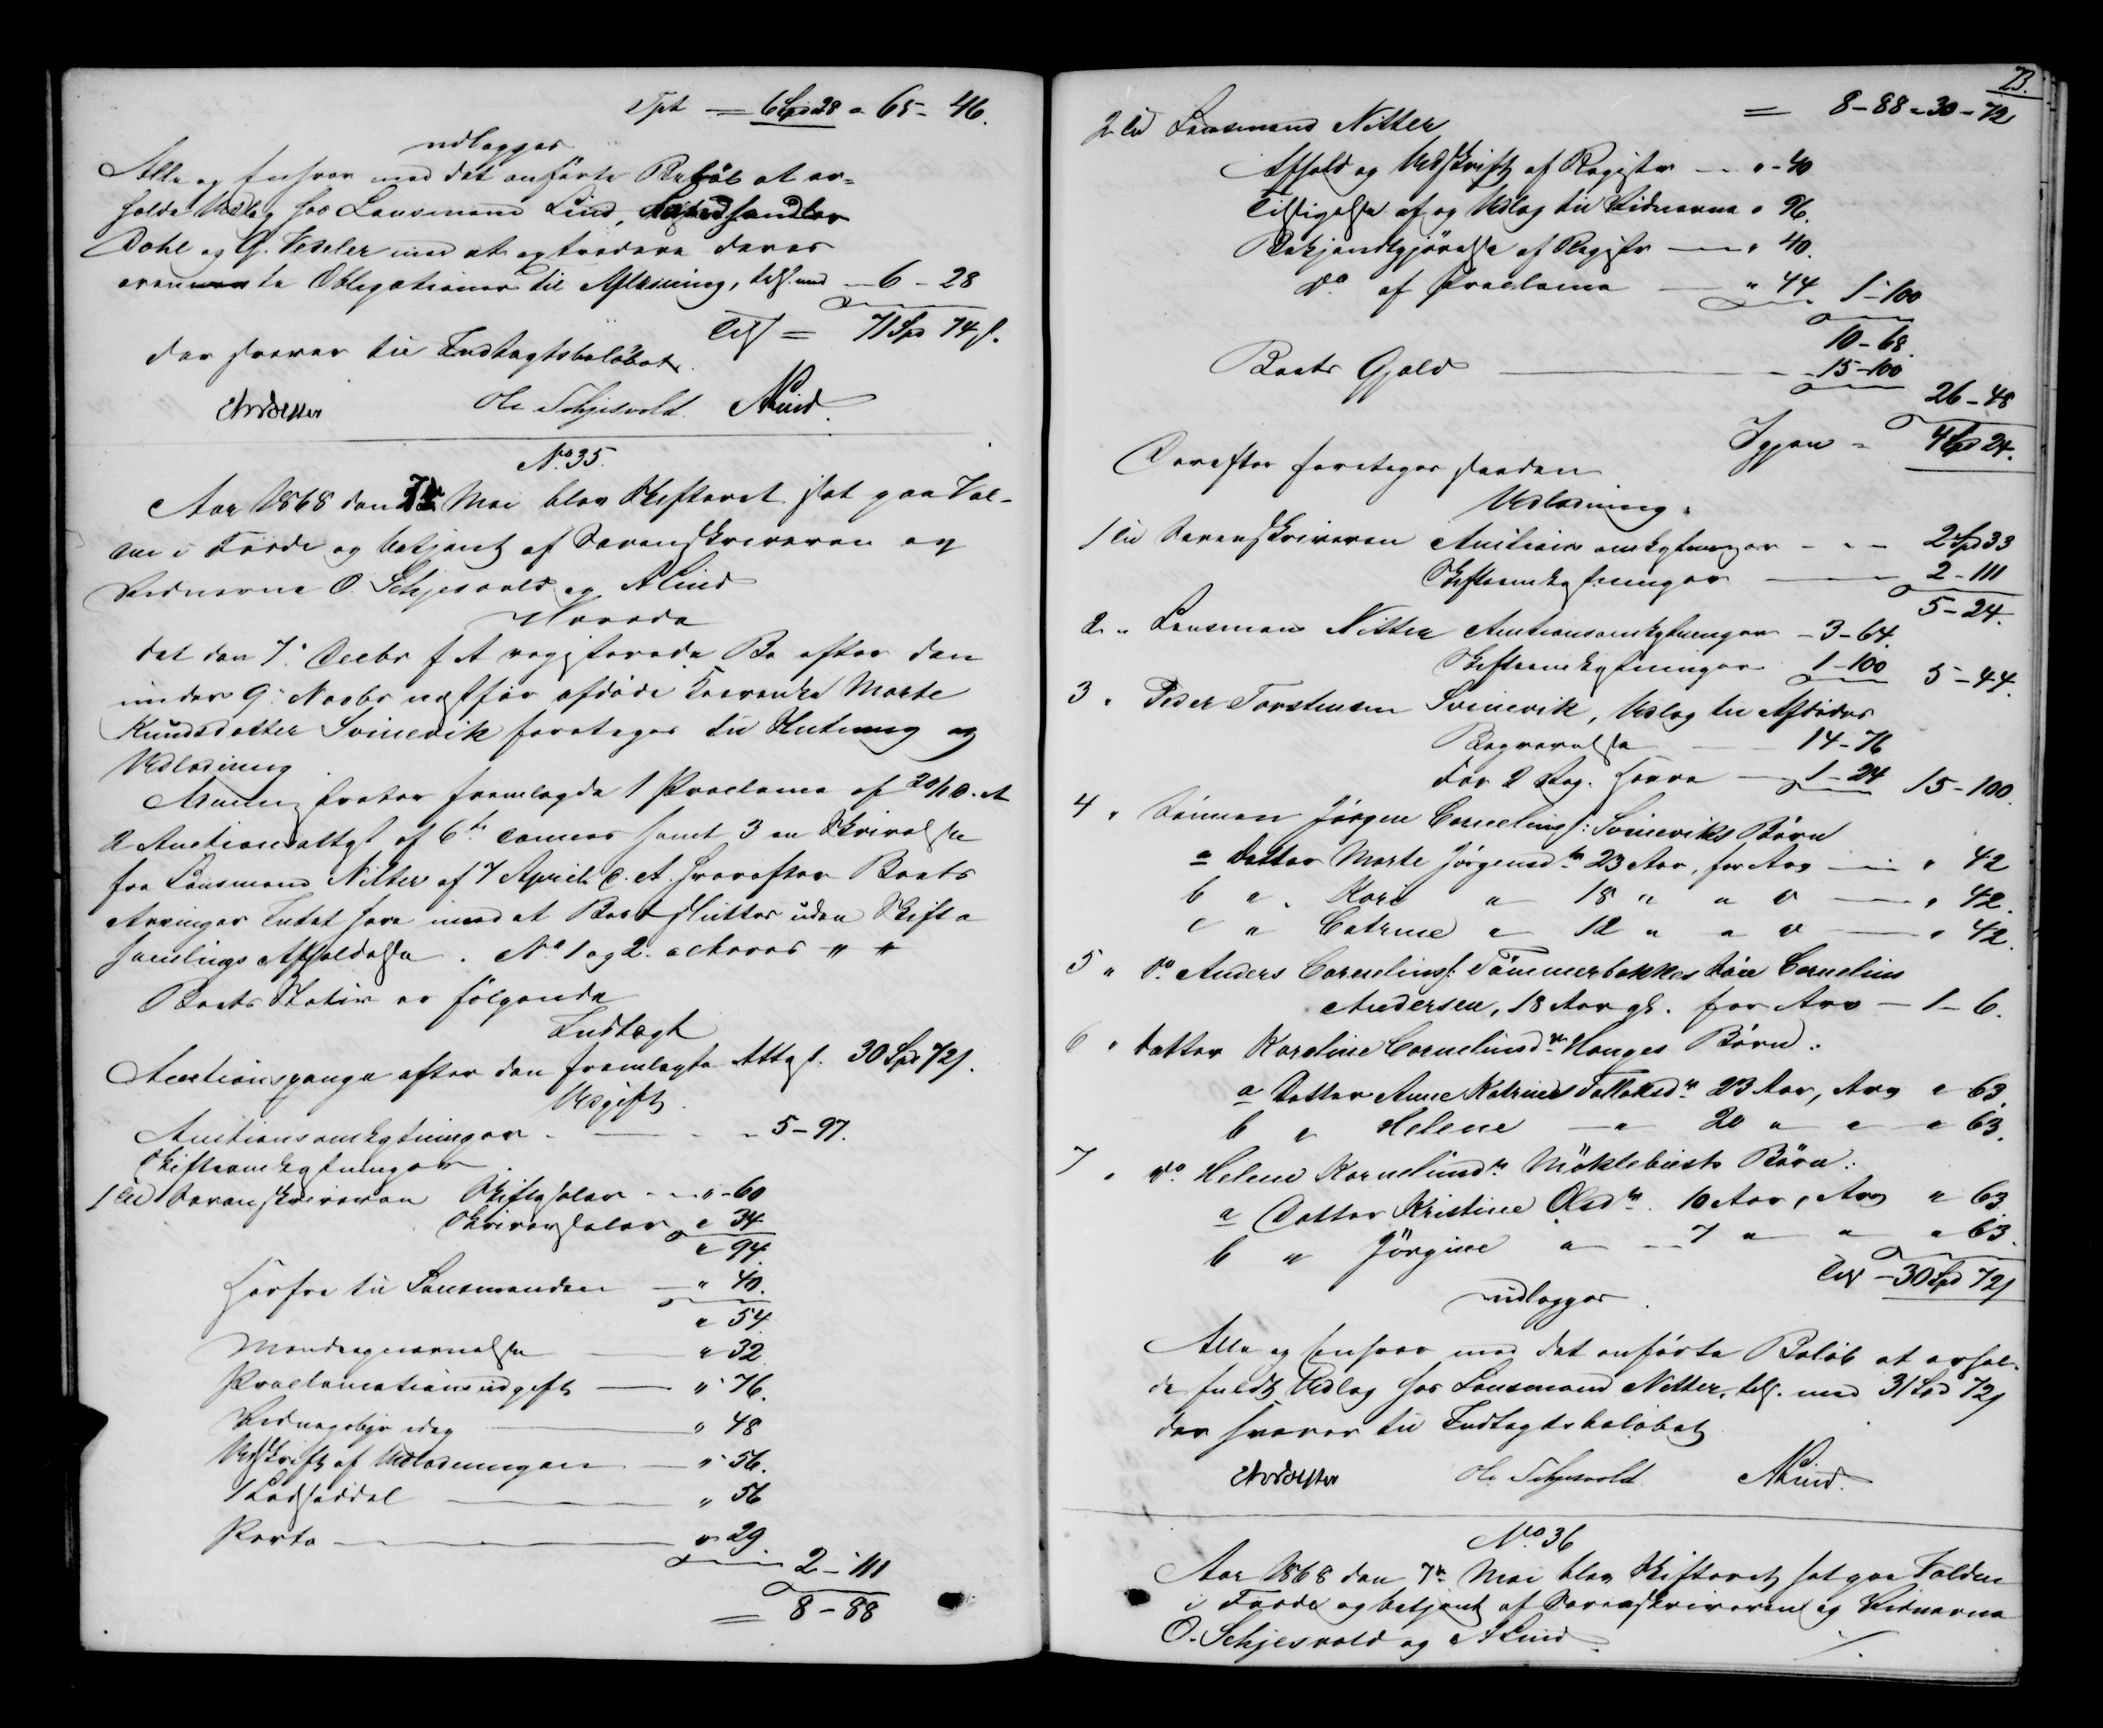 Tpt = 6 Spd 28 - 65 - 46.
udlægges
Alle og Enhver med det anførte Beløb at er-
holde Udlæg hos Lensmand Lind, Landhandler
Dahl og G. Veseler med at extradere deres
ovennævnte Obligationer til Aflæsning, tils. med — 6 - 28
Tils = 71 Spd 74 s.
der svarer til Indtægtsbeløbet.
Ole Schjesvold. ALind.
No 35.
Aar 1868 den 7de Mai blev Skifteret sat paa Val-
den i Førde og betjent af Sorenskriveren og
Vidnerne O. Schjesvold og A Lind
Hvorda
det den 7. Decbr f A registerede Bo efter den
under 9. Novbr næstfør afdøde Marte
Knudsdatter Svinevik foretages til Slutning og
Udlodning.
fremlagde 1 Proclama af 20/10. A
2 Auctionsattest af 6te samt 3 en Skrivelse
fra Lensmand Nitter af 7 April d. A. hvorefter Boets
Arvinger Intet have imod at Boet sluttes uden Skifte
samlings Afholdelse. No 1 og 2. acteres " "
Boets Status er følgende
Indtægt
Auctionspenge efter den fremlagte Attest. 30 Spd 72 s.
Udgift.
Auctionsomkostninger . — - - 5 - 97.
Skifteomkostninger.
1 til Sorenskriveren Skiftesalær - - " - 60
Skriversalær " 34
" 94.
Herfra til Lensmanden — " 40.
" 54
— " 32.
Proclamationsudgift — " 76.
Vidnegebyr idag — " 48
Udskrift af Udlodningen — " 56.
1 Lodseddel — " 56
Porto — " 29
2 - 111
= 8 - 88
73.
= 8 - 88 - 30 - 72
2 til Lensmand Nitter
Afhold og Udskrift af Register — " - 40
Tilsigelse af og Udlæg til Vidnerne " 96.
Bekjendtgjørelse af Register — " 40.
do af Proclama — " 44 1 - 100
10 - 68.
Boets Gjæld — 15 - 100
26 - 48
Igjen = 4 Spd 24.
Derefter foretages saadan
Udlodning.
1 til Sorenskriveren Auctionsomkostninger - - - 2 Spd 33
Skifteomkostninger — 2 - 111
5 - 24.
2 " Lensmand Nitter Auctionsomkostninger - 3 - 64.
Skifteomkostninger 1 - 100 5 - 44.
3 " Peder Torstensen Svinevik, Udlæg til Afdødes
Begravelse — 14 - 76
For 2 — 1 - 24 15 - 100.
4 " Sønnen Jørgen Corneliuss: Svineviks Børn
a Datter Marte Jørgensdtr 23 Aar, for Arv — " 42
b " . Kari " 18 " " " — " 42.
c " Catrine " 12 " " " — " 42.
5 " do Anders Corneliuss: Tømmerbakkes Søn Cornelius
Andersen, 18 Aar gl. for Arv — 1 - 6.
6 " Datter Karoline Corneliusdtr Hauges Børn:
a Datter Anne Katrine Tollefsdtr 23 Aar, Arv " 63.
b " Helene — " 20 " " " 63.
7 " do Helene Korneliusdtr Møklebusts Børn:
a Datter Kristine Olsdtr. 10 Aar, Arv " 63.
b " Jørgine " — 7 " " " 63.
Tils — 30 Spd 72 s
udlægges.
Alle og Enhver med det anførte Beløb at erhol-
de fuldt Udlæg hos Lensmand Nitter, tils. med 31 Spd 72 s
der svarer til Indtægtsbeløbet
Ole Schjesvold. ALind.
No 36
Aar 1868 den 7de Mai blev Skifteret sat paa Valden
i Førde og betjent af Sorenskriveren og Vidnerne
O. Schjesvold og A Lind.